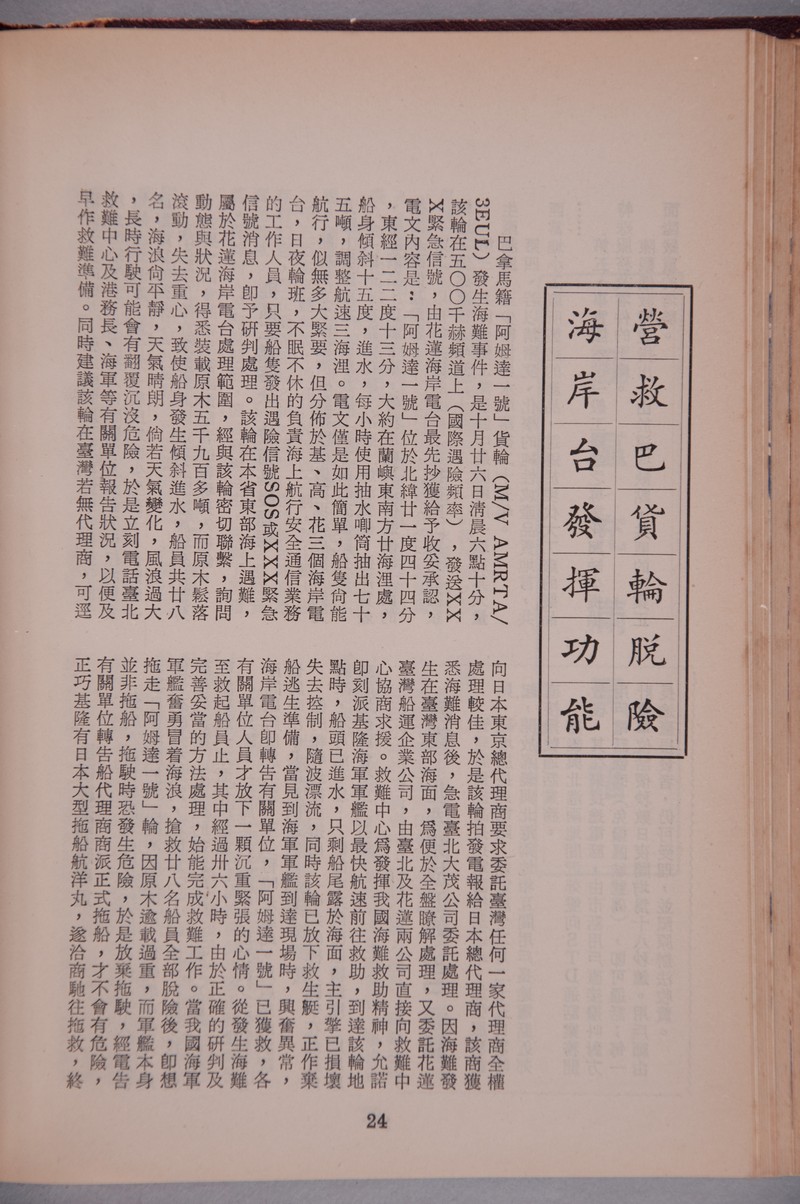 營救巴貨輪脫險
海岸台發揮功能
巴拿馬籍「阿姆達一號」貨輪（M/V AMRTA/
3EUL）發生海難事件，是十月廿六日清晨六點十分，
該輪在五〇〇千赫頻道上（國際遇險頻率），發送XX
X緊急信號，由花蓮海岸電台最先抄獲給予收妥承認，
電文內容是：「阿姆達一號」位於北緯廿一度四十四分
，東經一二二度十三分，大約在蘭嶼東南方廿海浬處，
船身傾斜十五度，進水，每小時使用抽水唧筒抽出七十
五噸，調整航速三海浬。電文僅是如此簡單，船隻尚能
航行，似無多大緊要，但分佈於基、高、花三個海岸電
台，日夜輪班，不眠不休的負責海上航行安全通信業務
的工作人員，只要船隻發出遇險信號SOS或XXX緊急
信號消息，卽予研判處理。該輪在本省東部海上遇難，
屬於花蓮海岸電台處理範圍，經與該輪密切聯繫，詢問
動態與狀況，得悉裝載原木五千九百多噸，而原木鬆落
滾動，失去重心，致使船身發生傾斜進水，船員共廿八
名，海浪尙平靜，天氣晴朗，倘若天氣變化，風浪過大
，長時行駛可能會有翻覆沉沒危險，於是立刻電話臺北
救難中心及港務長、海軍等有關單位報告狀況，以便及
早作救難準備。同時建議該輪在臺灣若無代理商，可逕
向日本東京總代理商要求委託臺灣任何一家代理商全權
處理較佳，於是該輪拍發電報給日本總代理商，該商獲
悉海難消息後，急電臺北大茂公司委託處理。因海難發
生在臺灣東部海面，爲便於全盤瞭解處理，又委託花蓮
臺灣船運企業公司，由臺北及花蓮兩公司直接向救難中
心協商求援。救難中心爲發揮我國海難救助精神，允諾
卽刻派基隆海軍軍艦以最快航速前往救助，到達該輪地
點時，船頭已進水，只剩船尾露於海面，主引擎已損壞
失去控制，隨波漂流，同時該輪已放下救生艇，正作棄
船逃生準備，當見到海軍軍艦到達現場時，興奮異常，
海岸電台卽轉告有關單位，「阿姆達一號」已獲救，各
有關單位人員才放下一顆沉重緊張的心情。從發生海難
至救起船員止，其中經過卅六小時，由於正確的研判及
完善妥當的方法處理，始能完成救難工作。當我國海軍
軍艦奮勇冒着海浪，搶救廿八名船員全部脫險後，卽想
拖走「阿姆達一號」輪，因原木逾載過重，而軍艦本身
並非拖船，拖駛時恐發生危險，於是放棄拖駛，經電告
有關單位轉告船代理商商派正式拖船，才不會有危險，
正巧基隆有日本大型拖船航洋丸，遂洽商馳往拖救，終
24